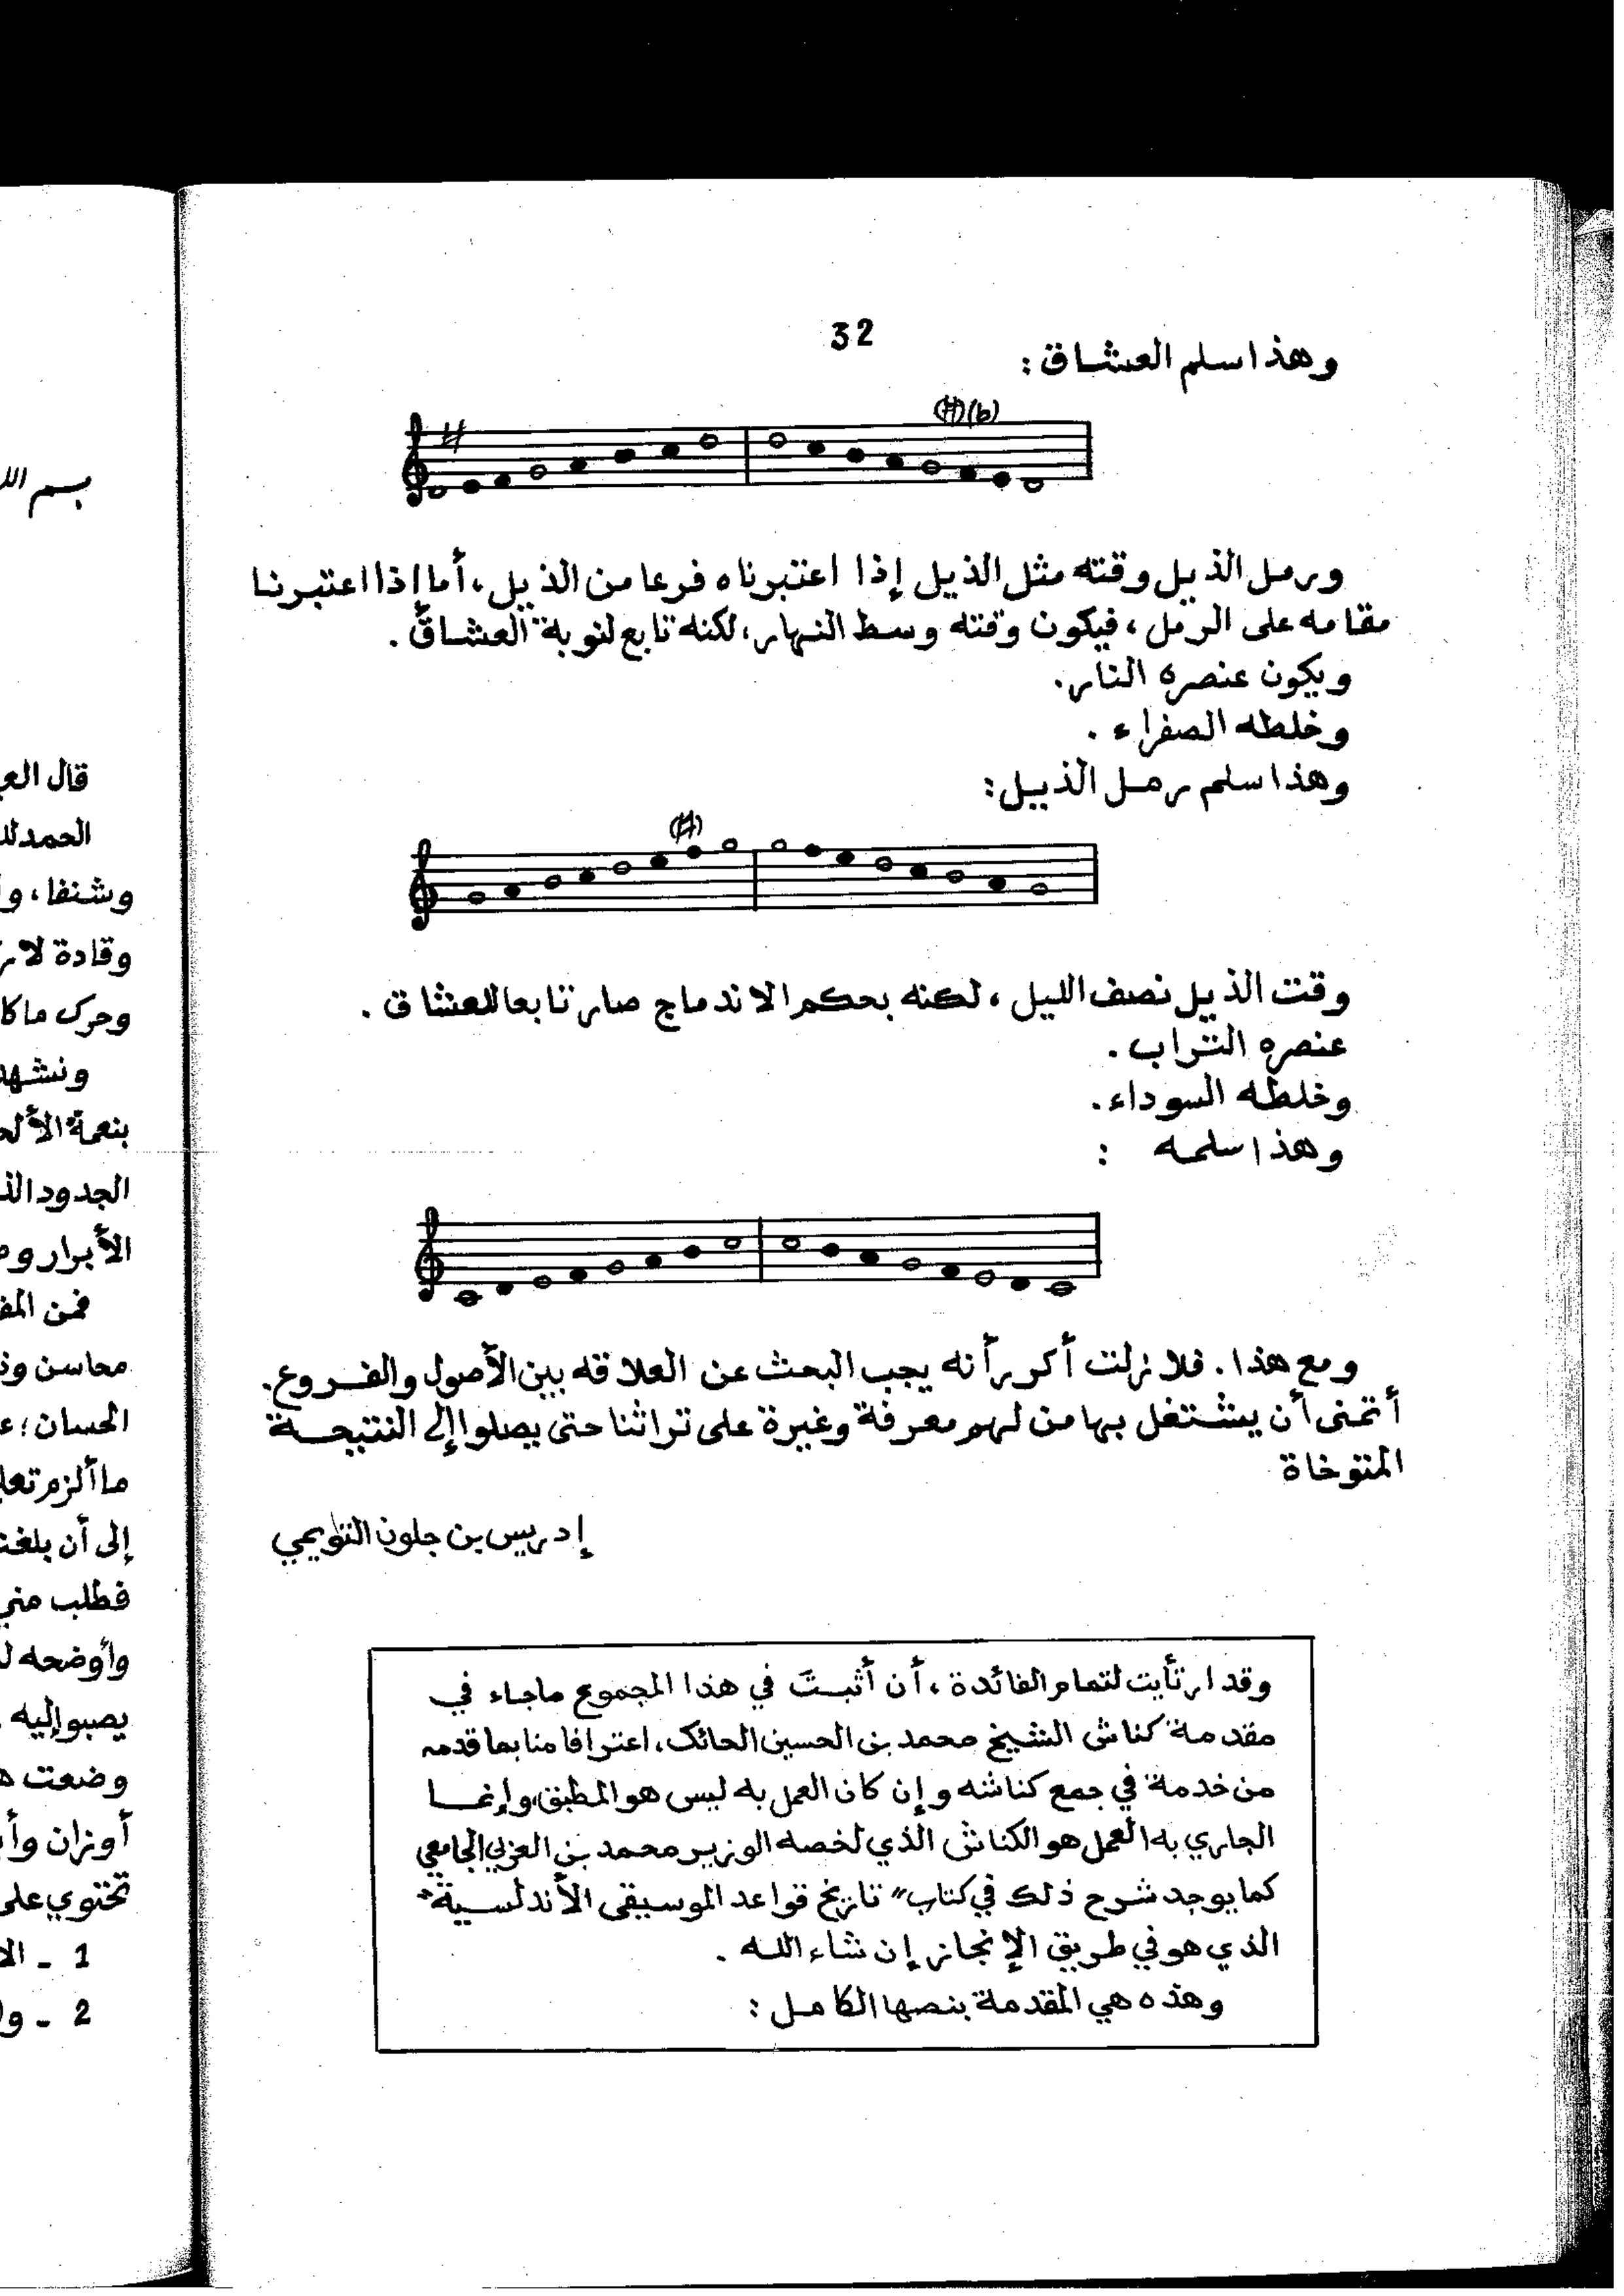 32
وهذا سلم العشاق :
(b)
ورمل الذيل وقته مثل الذيل إذا اعتبرناه فرعا من الذيل، أما إذا اعتبرنا
مقامه على الرمل، فيكون وقته وسط النهار، لكنه تابع لنوبة العشاق.
ويكون عنصره النار.
وخلطه الصفراء .
وهذا سلم رمل الذيل:
وقت الذيل نصف الليل، لكنه بحكم الاندماج صار تابعا للعشاق .
عنصره التراب .
وخلطه السوداء.
وهذا سلمه :
ومع هذا. فلا زلت أكرر أنه يجب البحث عن العلاقه بين الأصول والفروع.
أتمنى أن يشتغل بها من لهم معرفة وغيرة على تراثنا حتى يصلوا إلى النتيجة
المتوخاة
إدريس بن جلون التويمي
وقد ارتأيت لتمام الفائدة، أن أثبت في هذا المجموع ماجاء في
مقدمة كناش الشيخ محمد بن الحسين الحائك، اعترافا منا بما قدمه
من خدمة في جمع كناشه وإن كان العمل به ليس هو المطبق، وإنما
الجاري به العمل هو الكناش الذي لخصه الوزير محمد بن العربي الجامعي
كما يوجد شرح ذلك في كتاب "تاريخ قواعد الموسيقى الأندلسية"
الذي هو في طريق الإنجاز إن شاء الله .
وهذه هي المقدمة بنصها الكامل :
بسم الل
قال الع
الحمد لل
وشنفا، و
وقادة لا
وحرك ما كا
ونشهد
بنعمة الألح
الجدود الذ
الأبرار و
فمن المف
محاسن وذ
الحسان؛ ع
ما ألزم تعل
إلى أن بلغت
فطلب مني
وأوضحه ل
يصبو إليه .
وضعت ه
أوزان وأ
تحتوي على
1 - الا
2 - و